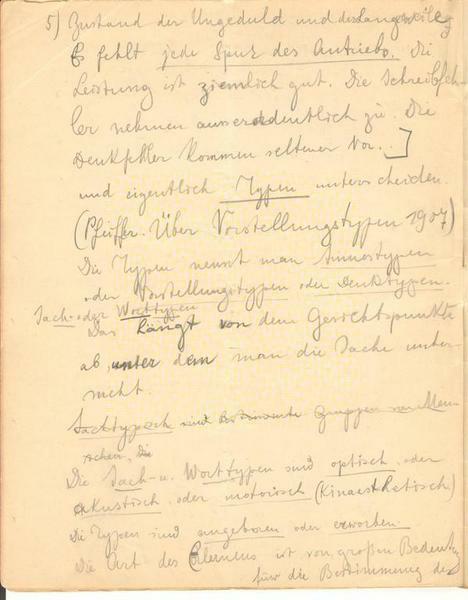 5) Zustand der Ungeduld und der Langweile
Es fehlt jede Spur des Antriebs. Die
Leistung ist ziemlich gut. Die Schreibfeh-
ler nehmen ausserordentlich zu. Die
Denkfehler kommen seltener vor..]
und eigentlich Typen unterscheiden.
(Pfeiffer. Über Vorstellungstypen 1907)
Die Typen nennt man
oder Vorstellungstypen oder Denktypen.
Sach- oder Worttypen
Das hängt von dem Gesichtspunkte
ab, unter dem man die Sache unter-
sucht.
Sachtypen sind bestimmte Gruppen von Men-
schen, die
Die Sach- u. Worttypen sind optisch oder
akustisch oder motorisch (Kinaesthetisch)
Die Typen sind angeboren oder erworben.
Die Art des Erlernens ist von großen Bedeutung
für die Bestimmung des